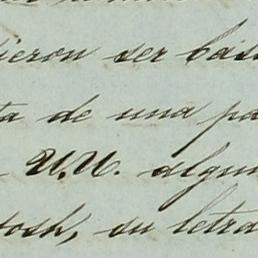 ieron ser bas
ta de una pa
U.U. algun
tosh, su letra